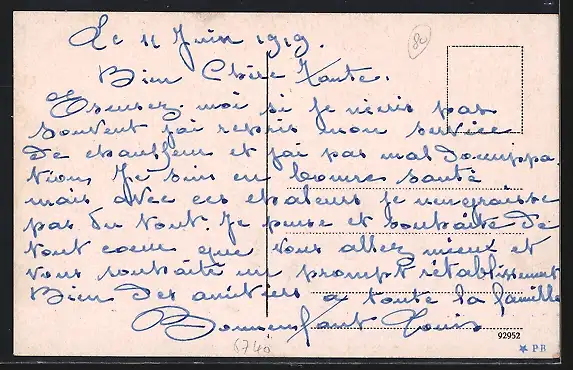 Le 11 Juin 1919.
80
Bien Chère Tante.
Excusez moi si je n'écris pas
souvent j'ai repris mon service
de chauffeur et j'ai pas mal d'occuppa
tion, Je suis en bonne santé
mais avec ces chaleurs je n'engraisse
pas du tout. Je pense et souhaite de
tout coeur que vous allez mieux et
vous souhaite un prompt rétablissement
Bien des amitiés a toute la famille
Bonnenfant Louis
6740
92952
★ PR